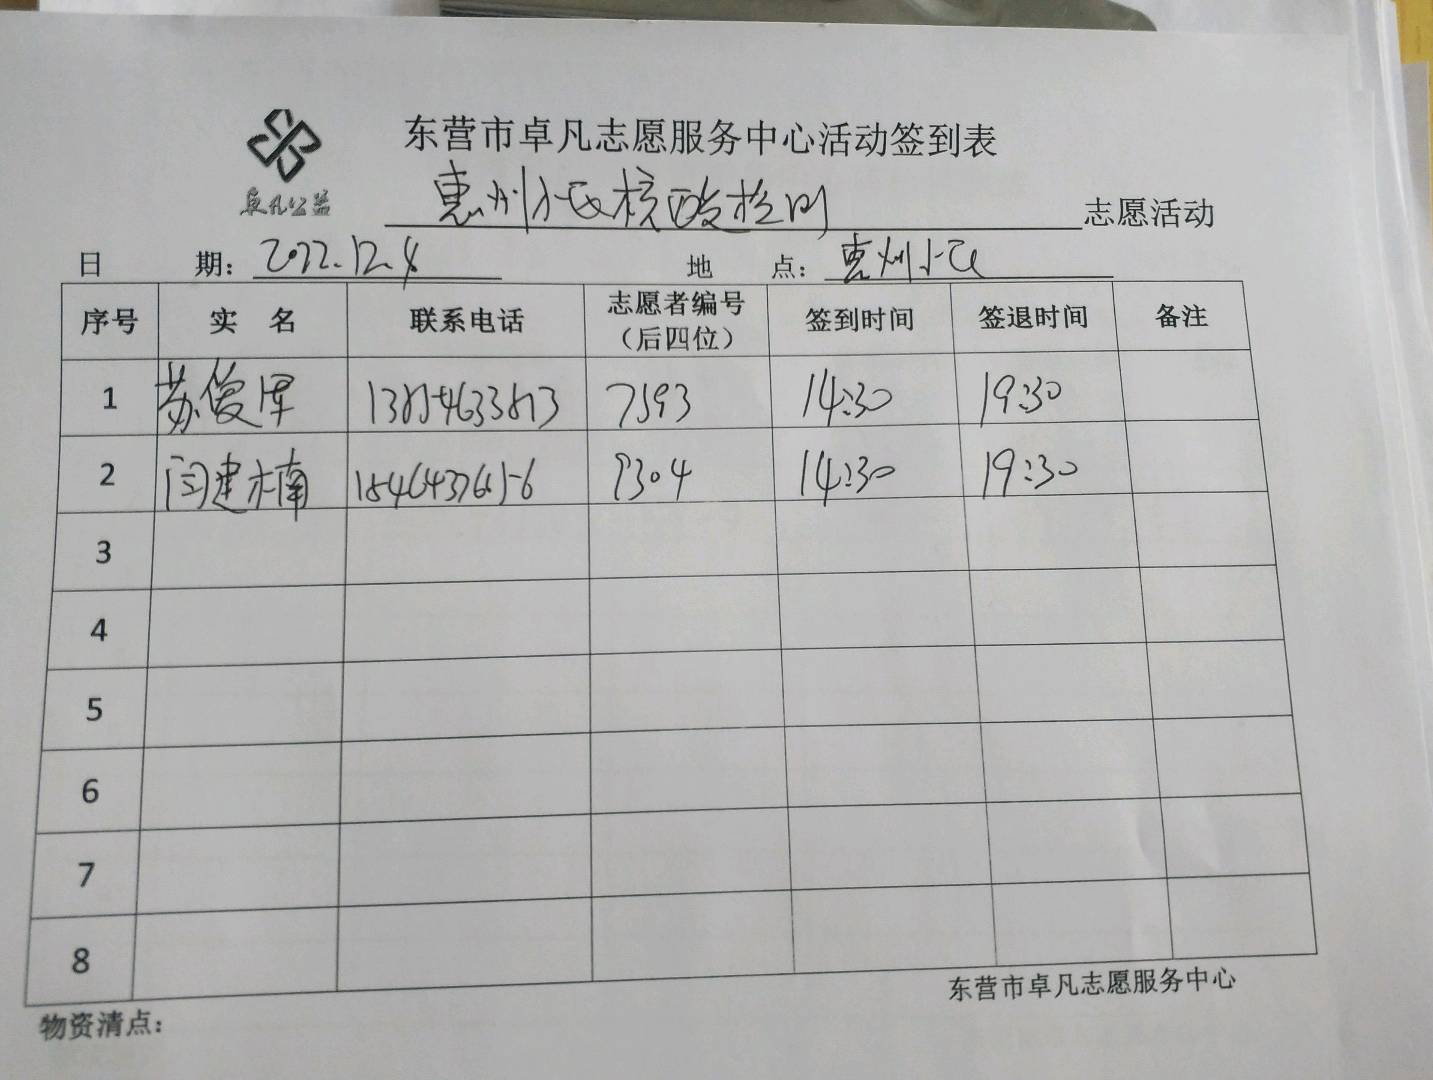 东营市卓凡志愿服务中心活动签到表
卓凡公益
惠州小区核酸检测 志愿活动
日 期：2022.12.4 地 点：惠州小区
序号 实 名 联系电话 志愿者编号（后四位） 签到时间 签退时间 备注
1 苏俊 7593 14:30 19:30
2 闫建楠 9304 14:30 19:30
3
4
5
6
7
8
东营市卓凡志愿服务中心
物资清点：